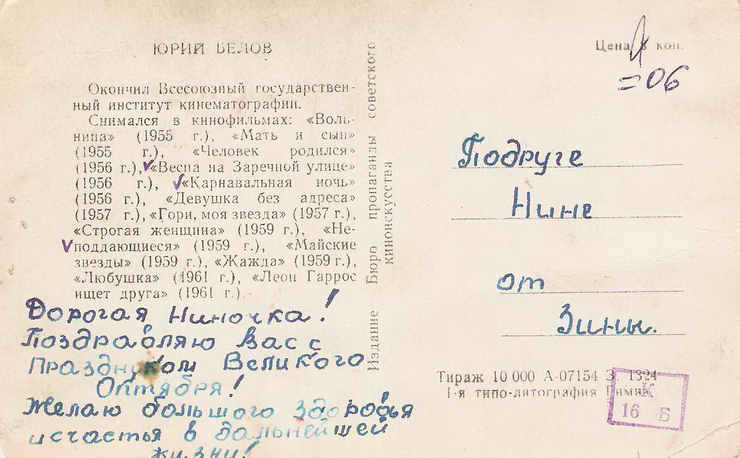 ЮРИЙ БЕЛОВ
Окончил Всесоюзный государствен-
ный институт кинематографии.
Снимался в кинофильмах: «Воль-
ница» (1955 г.), «Мать и сын»
(1955 г.), «Человек родился»
(1956 г.), «Весна на Заречной улице»
(1956 г.), «Карнавальная ночь»
(1956 г.), «Девушка без адреса»
(1957 г.), «Гори, моя звезда» (1957 г.),
«Строгая женщина» (1959 г.), «Не-
поддающиеся» (1959 г.), «Майские
звезды» (1959 г.), «Жажда» (1959 г.),
«Любушка» (1961 г.), «Леон Гаррос
ищет друга» (1961 г.)
Дорогая Ниночка!
Поздравляю Вас с
Праздником Великого
Октября!
Желаю большого здоровья
и счастья в дальнейшей
жизни!
Издание Бюро пропаганды советского
киноискусства
Цена 8 коп.
=06
Подруге
Нине
от
Зины.
Тираж 10 000 А-07154 З. 1324
1-я типо-литография
К
16 Б